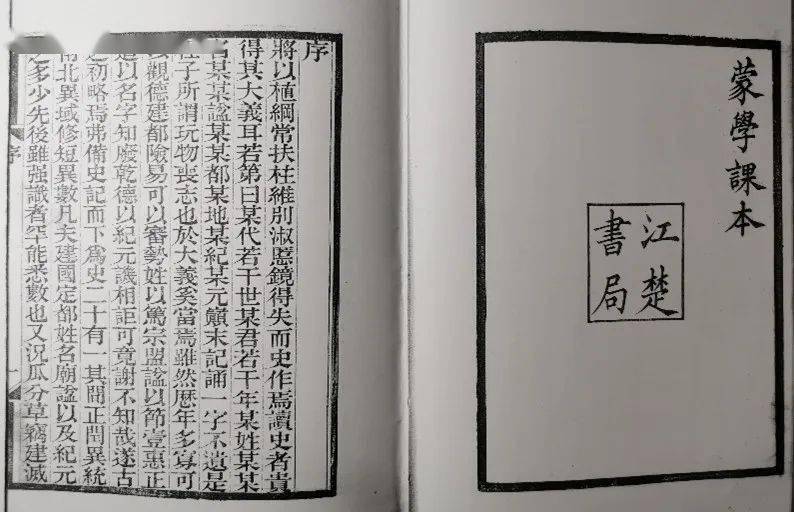 蒙學課本
江楚
書局
序
將以植綱常扶柱維別淑慝鏡得失而史作焉讀史者貴
得其大義耳若第曰某代若干世某君若干年某姓某某
名某某諡某某都某地某紀某元顛末記誦一字不遺是
子所謂玩物喪志也於大義奚當焉雖然歷年多寡可
以觀德建都險易可以審勢姓以篤宗盟諡以節壹惠正
道以名字知廢乾德以紀元譏相詎可竟謝不知哉遂古
之初略焉弗備史記而下爲史二十有一其間正閏異統
南北異域修短異數凡夫建國定都姓名廟諡以及紀元
之多少先後雖强識者罕能悉數也又況瓜分草竊建滅
序
一